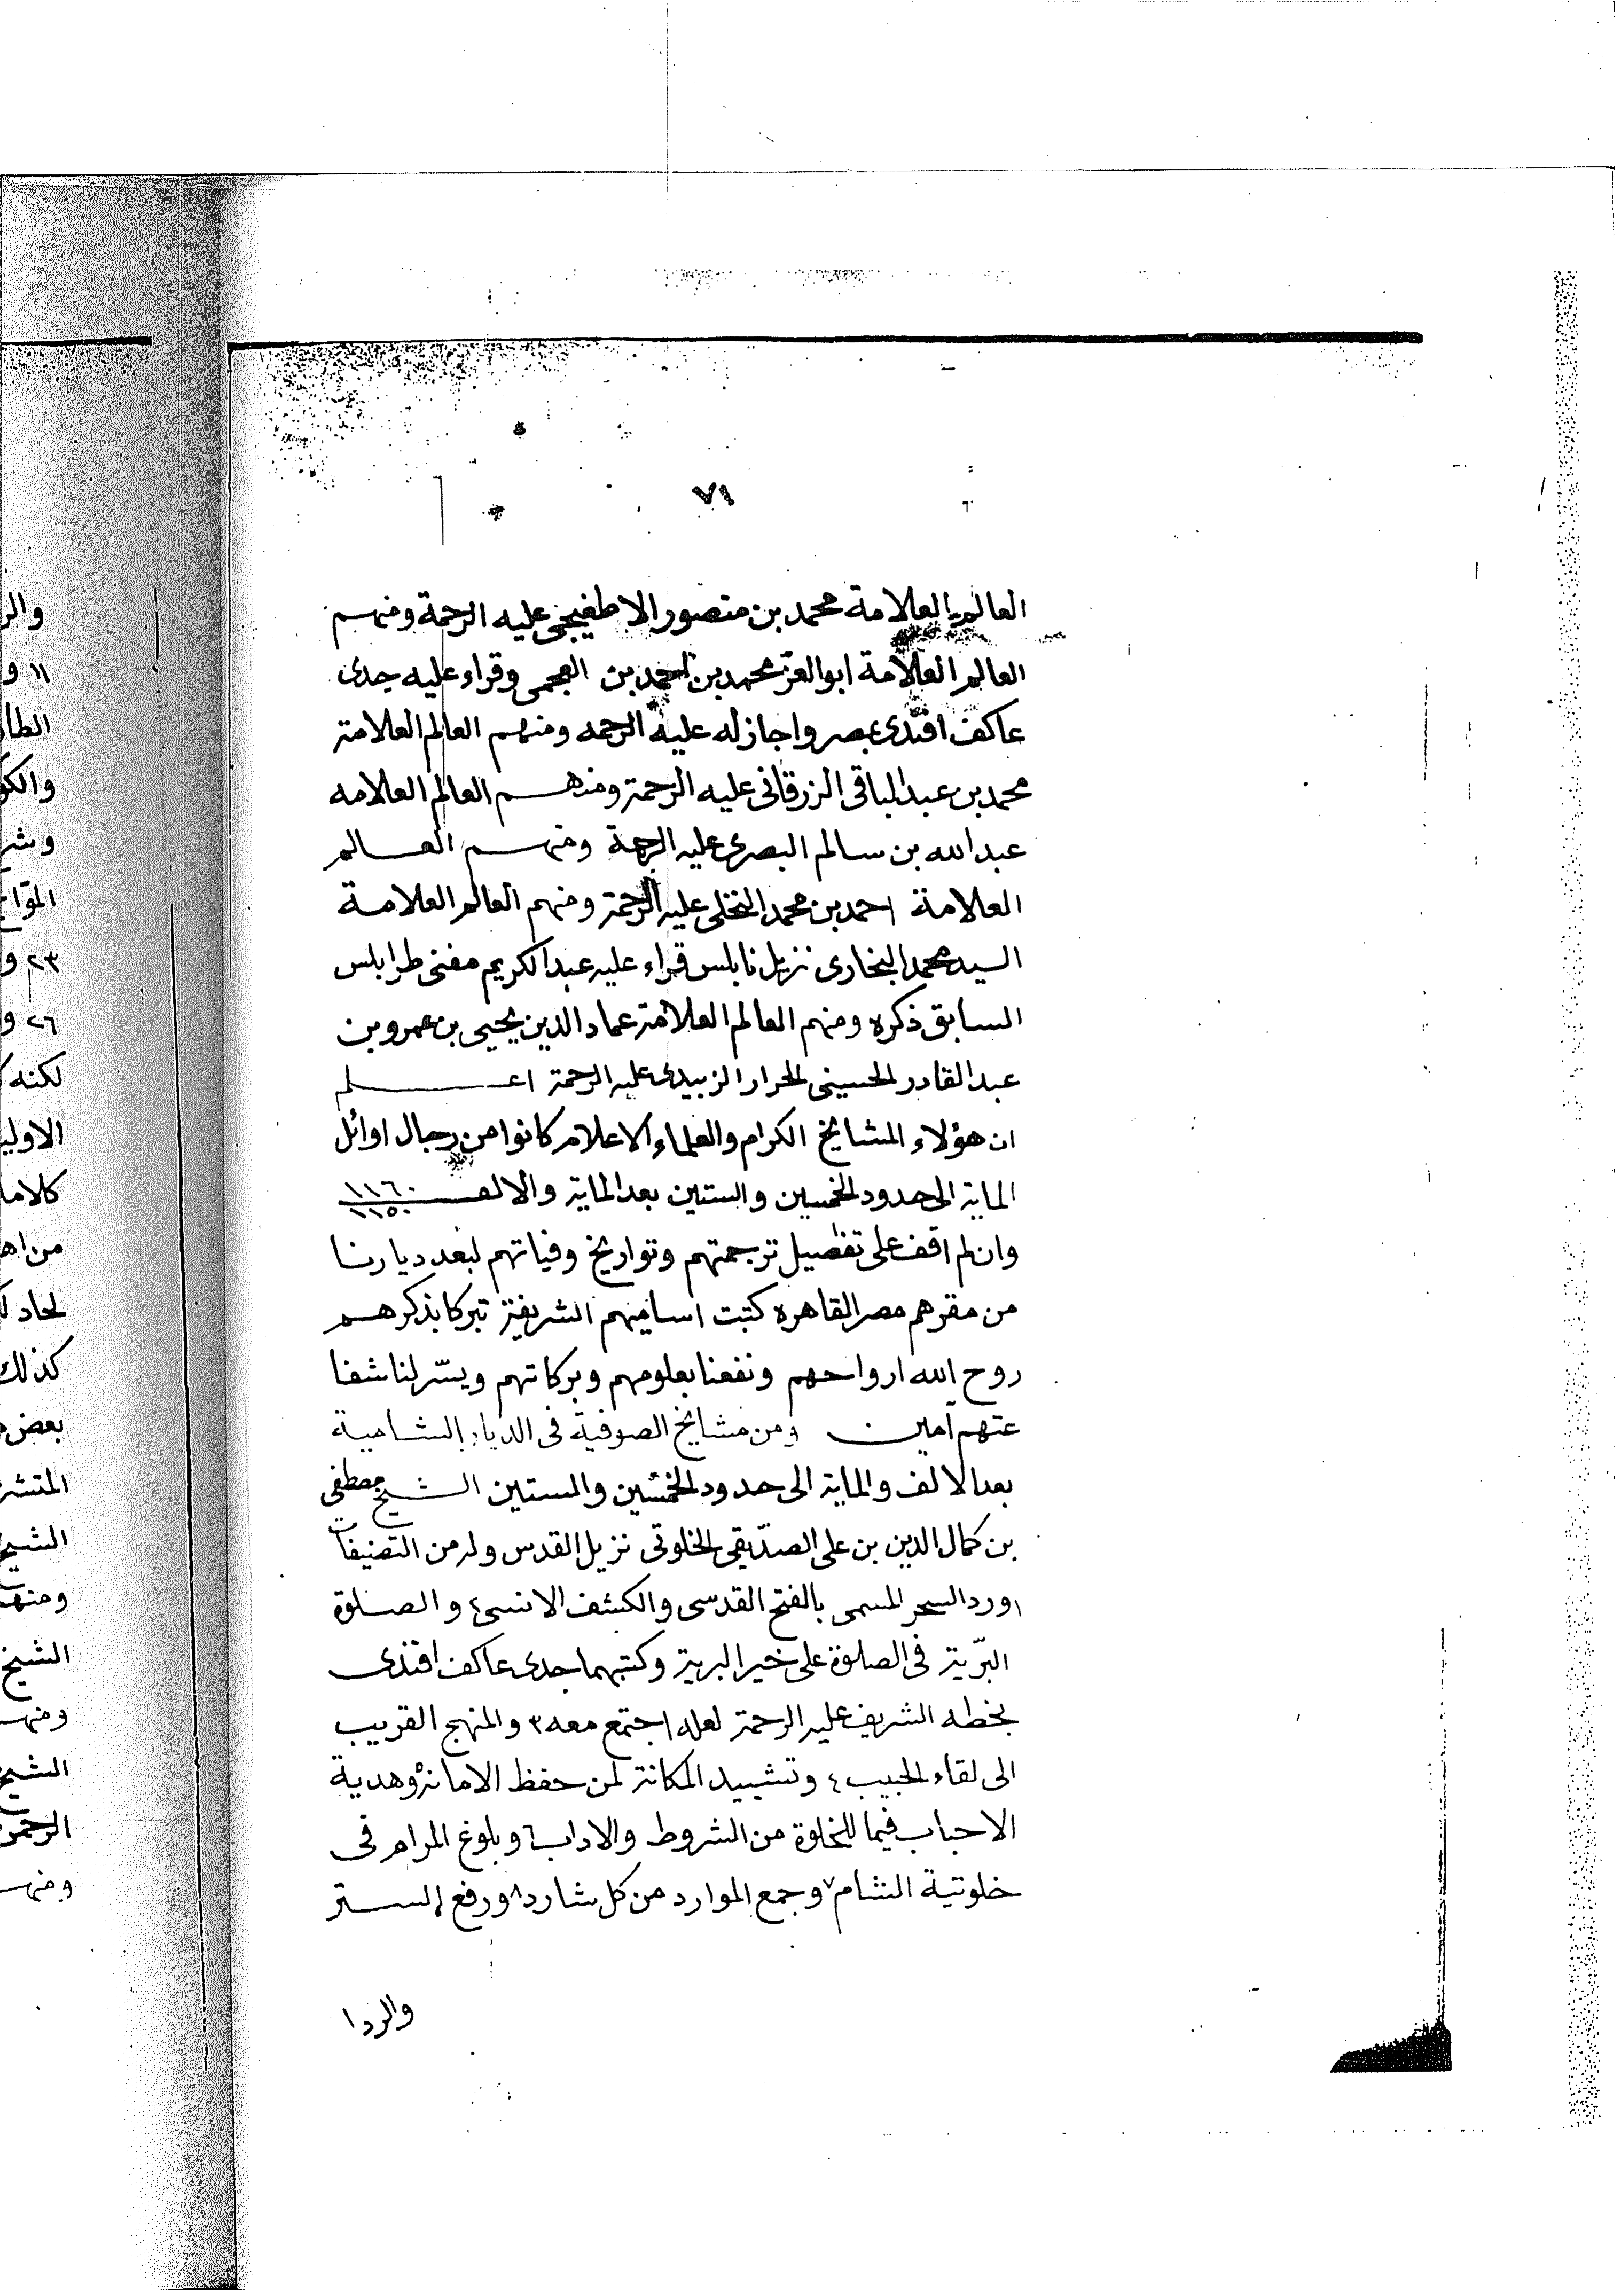 ٧١
العالم العلامة محمد بن منصور الاطفيحى عليه الرحمة ومنهم
العالم العلامة ابو العز محمد بن احمد بن العجمى وقراء عليه جدى
عاكف افندى بمصر واجاز له عليه الرحمه ومنهم العالم العلامة
محمد بن عبد الباقى الزرقانى عليه الرحمة ومنهم العالم العلامه
عبد الله بن سالم البصرى عليه الرحمة ومنهم العالم
العلامة احمد بن محمد النخلى عليه الرحمة ومنهم العالم العلامة
السيد محمد البخارى نزيل نابلس قراء عليه عبد الكريم مفتى طرابلس
السابق ذكره ومنهم العالم العلامة عماد الدين يحيى بن عمرو بن
عبد القادر الحسينى الحرار الزبيدى عليه الرحمة اعلم
ان هؤلاء المشايخ الكرام والعلماء الاعلام كانوا من رجال اوائل
الماية الى حدود الخمسين والستين بعد الماية والالف ١١٦٠ ١١٥٠
وان لم اقف على تفصيل ترجمتهم وتواريخ وفياتهم لبعد ديارنا
من مقرهم مصر القاهره كتبت اساميهم الشريفة تبركا بذكرهم
روح الله ارواحهم ونفعنا بعلومهم وبركاتهم ويسّر لنا شفا
عتهم آمين ومن مشايخ الصوفية فى الديار الشامية
بعد الالف والماية الى حدود الخمسين والستين الشيخ مصطفى
بن كمال الدين بن على الصدّيقى الخلوتى نزيل القدس وله من التصنيفات
١ ورد السحر المسمى بالفتح القدسى والكشف الانسى ٢ والصلوة
البرّية فى الصلوة على خير البرية وكتبهما جدى عاكف افندى
بخطه الشريف عليه الرحمة لعله اجتمع معه ٣ والمنهج القريب
الى لقاء الحبيب ٤ وتشييد المكانة لمن حفظ الامانة ٥ وهدية
الاحباب فيما للخلوة من الشروط والاداب ٦ وبلوغ المرام فى
خلوتية الشام ٧ وجمع الموارد من كل شارد ٨ ورفع الستر
والردا
والر
١١ و
الطا
والكو
وشر
٢٣ و
٢٦ و
لكنه
الاولي
كلاما
من اهـ
كذلك
بعض
المتشر
الشيخ
ومنهـ
الشيخ
ومنهـ
الشيخ
الرحمن
ومنهـ